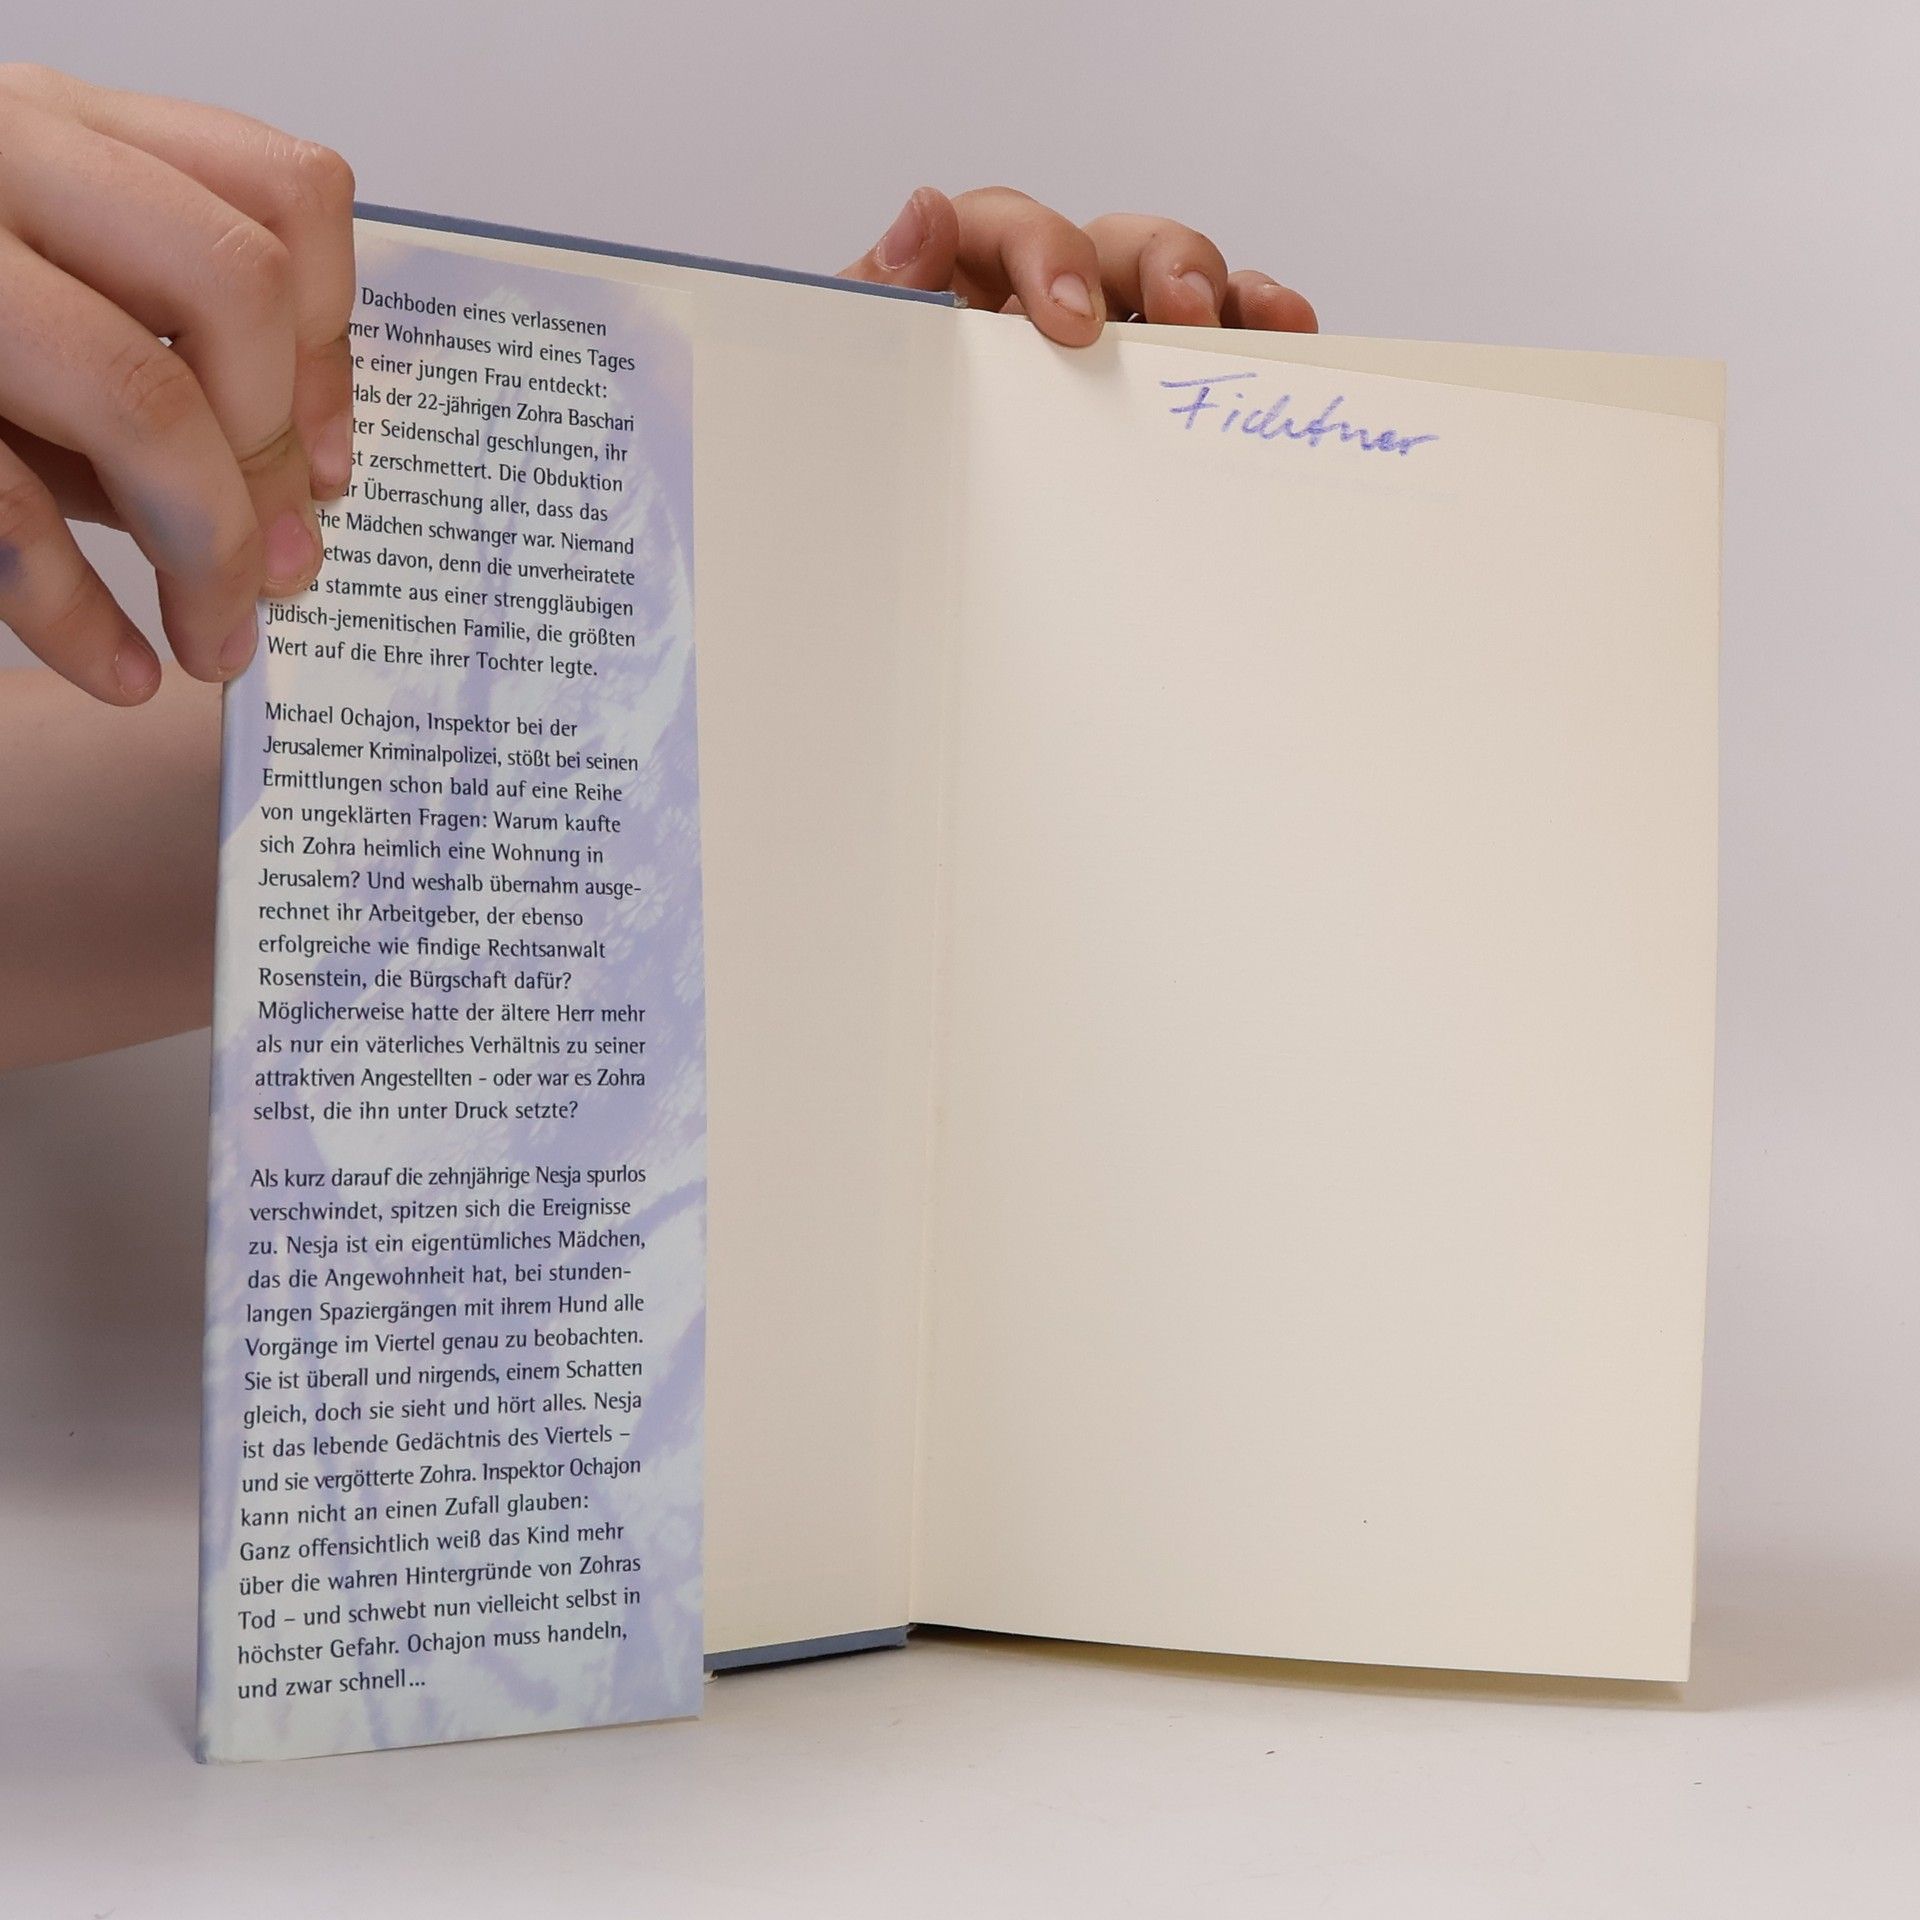 Dachboden eines verlassenen
Wohnhauses wird eines Tages
einer jungen Frau entdeckt:
der 22-jährigen Zohra Baschari
Seidenschal geschlungen, ihr
zerschmettert. Die Obduktion
Überraschung aller, dass das
Mädchen schwanger war. Niemand
etwas davon, denn die unverheiratete
stammte aus einer strenggläubigen
jüdisch-jemenitischen Familie, die größten
Wert auf die Ehre ihrer Tochter legte.
Michael Ochajon, Inspektor bei der
Jerusalemer Kriminalpolizei, stößt bei seinen
Ermittlungen schon bald auf eine Reihe
von ungeklärten Fragen: Warum kaufte
sich Zohra heimlich eine Wohnung in
Jerusalem? Und weshalb übernahm ausge-
rechnet ihr Arbeitgeber, der ebenso
erfolgreiche wie findige Rechtsanwalt
Rosenstein, die Bürgschaft dafür?
Möglicherweise hatte der ältere Herr mehr
als nur ein väterliches Verhältnis zu seiner
attraktiven Angestellten – oder war es Zohra
selbst, die ihn unter Druck setzte?
Als kurz darauf die zehnjährige Nesja spurlos
verschwindet, spitzen sich die Ereignisse
zu. Nesja ist ein eigentümliches Mädchen,
das die Angewohnheit hat, bei stunden-
langen Spaziergängen mit ihrem Hund alle
Vorgänge im Viertel genau zu beobachten.
Sie ist überall und nirgends, einem Schatten
gleich, doch sie sieht und hört alles. Nesja
ist das lebende Gedächtnis des Viertels –
und sie vergötterte Zohra. Inspektor Ochajon
kann nicht an einen Zufall glauben:
Ganz offensichtlich weiß das Kind mehr
über die wahren Hintergründe von Zohras
Tod – und schwebt nun vielleicht selbst in
höchster Gefahr. Ochajon muss handeln,
und zwar schnell...
Fichtner